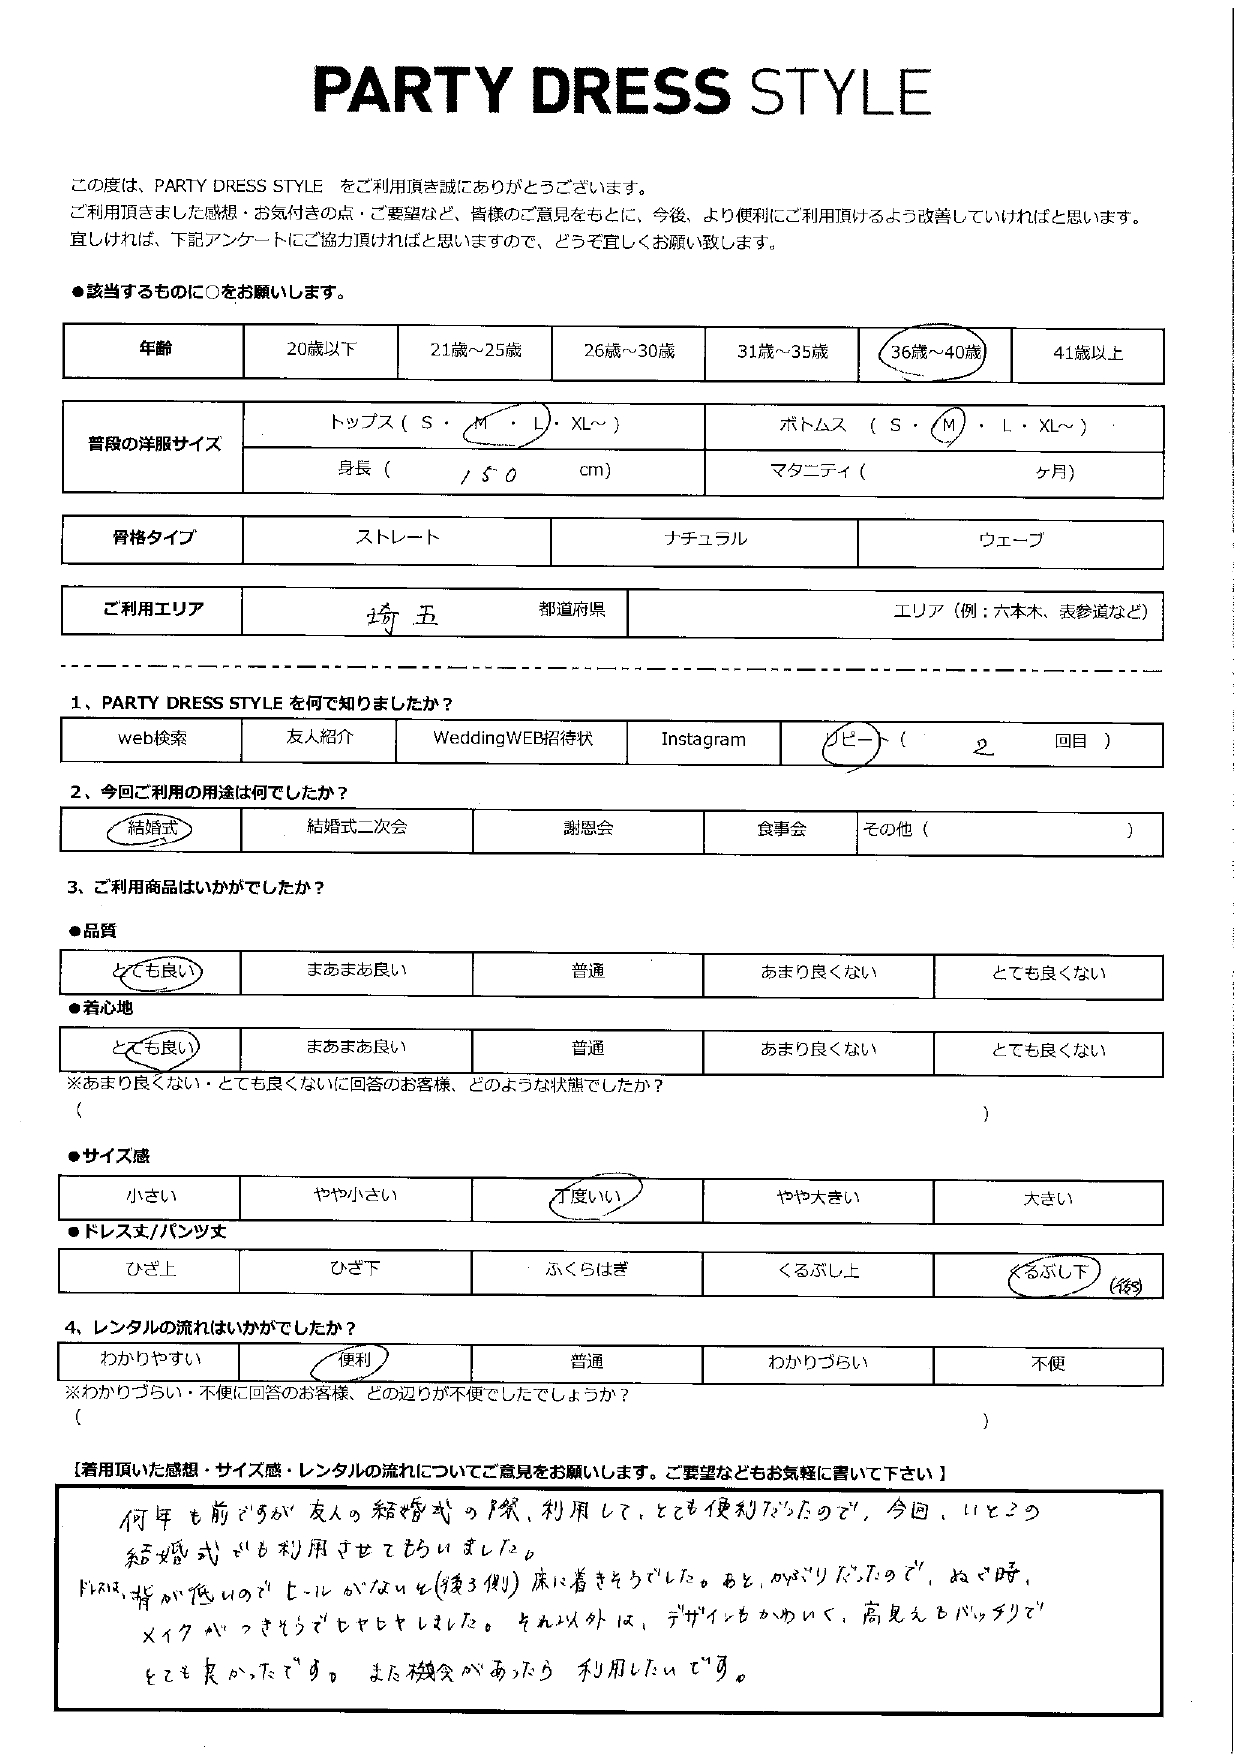 PARTY DRESS STYLE
この度は、PARTY DRESS STYLE をご利用頂き誠にありがとうございます。
ご利用頂きました感想・お気付きの点・ご要望など、皆様のご意見をもとに、今後、より便利にご利用頂けるよう改善していければと思います。
宜しければ、下記アンケートにご協力頂ければと思いますので、どうぞ宜しくお願い致します。
●該当するものに○をお願いします。
年齢 20歳以下 21歳～25歳 26歳～30歳 31歳～35歳 36歳～40歳 41歳以上
普段の洋服サイズ トップス ( S ・ M ・ L ・ XL～ ) ボトムス ( S ・ M ・ L ・ XL～ )
身長 ( 150 cm) マタニティ ( ヶ月)
骨格タイプ ストレート ナチュラル ウェーブ
ご利用エリア 埼玉 都道府県 エリア（例；六本木、表参道など）
1、PARTY DRESS STYLE を何で知りましたか？
web検索 友人紹介 WeddingWEB招待状 Instagram リピート ( 2 回目 )
2、今回ご利用の用途は何でしたか？
結婚式 結婚式二次会 謝恩会 食事会 その他 ( )
3、ご利用商品はいかがでしたか？
●品質
とても良い まあまあ良い 普通 あまり良くない とても良くない
●着心地
とても良い まあまあ良い 普通 あまり良くない とても良くない
※あまり良くない・とても良くないに回答のお客様、どのような状態でしたか？
( )
●サイズ感
小さい やや小さい 丁度いい やや大きい 大きい
●ドレス丈/パンツ丈
ひざ上 ひざ下 ふくらはぎ くるぶし上 くるぶし下 (後ろ)
4、レンタルの流れはいかがでしたか？
わかりやすい 便利 普通 わかりづらい 不便
※わかりづらい・不便に回答のお客様、どの辺りが不便でしたでしょうか？
( )
【着用頂いた感想・サイズ感・レンタルの流れについてご意見をお願いします。ご要望などもお気軽に書いて下さい 】
何年も前ですが友人の結婚式の際、利用して、とても便利だったので、今回、いとこの
結婚式でも利用させてもらいました。
ドレスは、背が低いのでヒールがないと(後ろ側)床に着きそうでした。あと、かぶりだったので、ぬぐ時、
メイクがつきそうでヒヤヒヤしました。それ以外は、デザインもかわいく、高見えもバッチリで
とても良かったです。また機会があったら利用したいです。